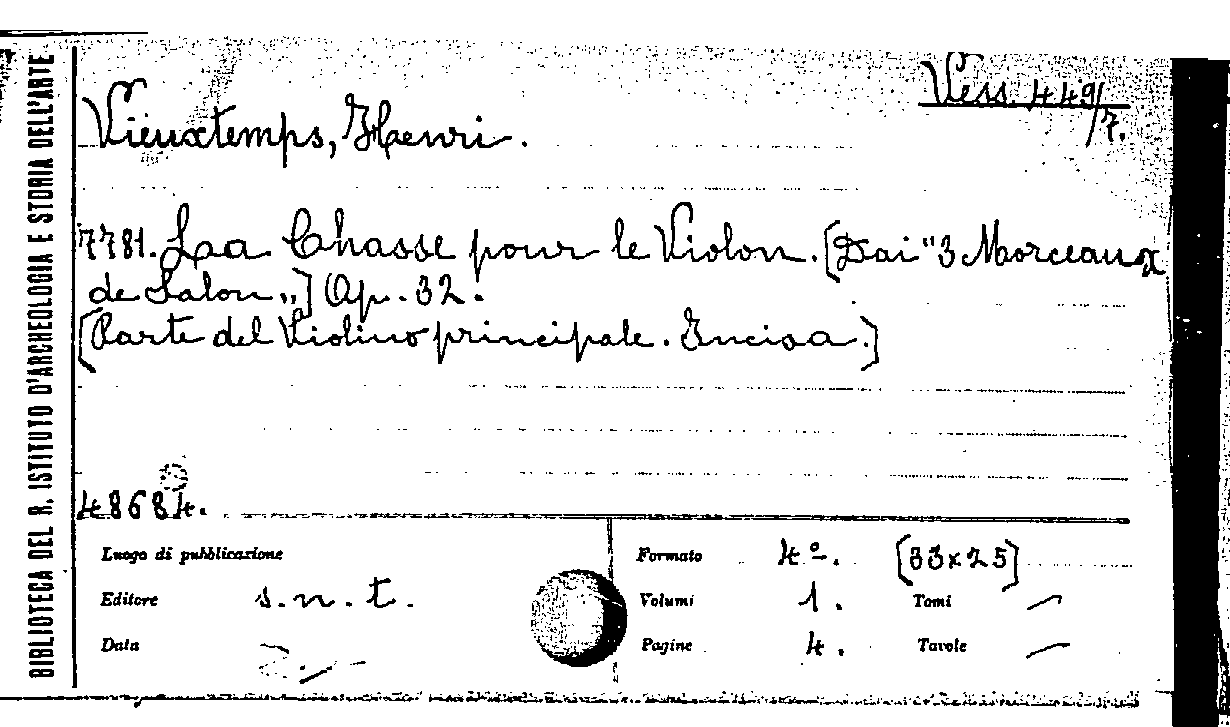 BIBLIOTECA DEL R. ISTITUTO D'ARCHEOLOGIA E STORIA DELL'ARTE
Vess. 449/7.
Vieuxtemps, Henri.
7781. La Chasse pour le Violon. [Dai "3 Morceaux
de Salon„] Op. 32.
[Parte del Violino principale. Incisa.]
48684.
Luogo di pubblicazione
Editore s.n.t.
Data
Formato 4º. [33x25]
Volumi 1. Tomi —
Pagine 4. Tavole —